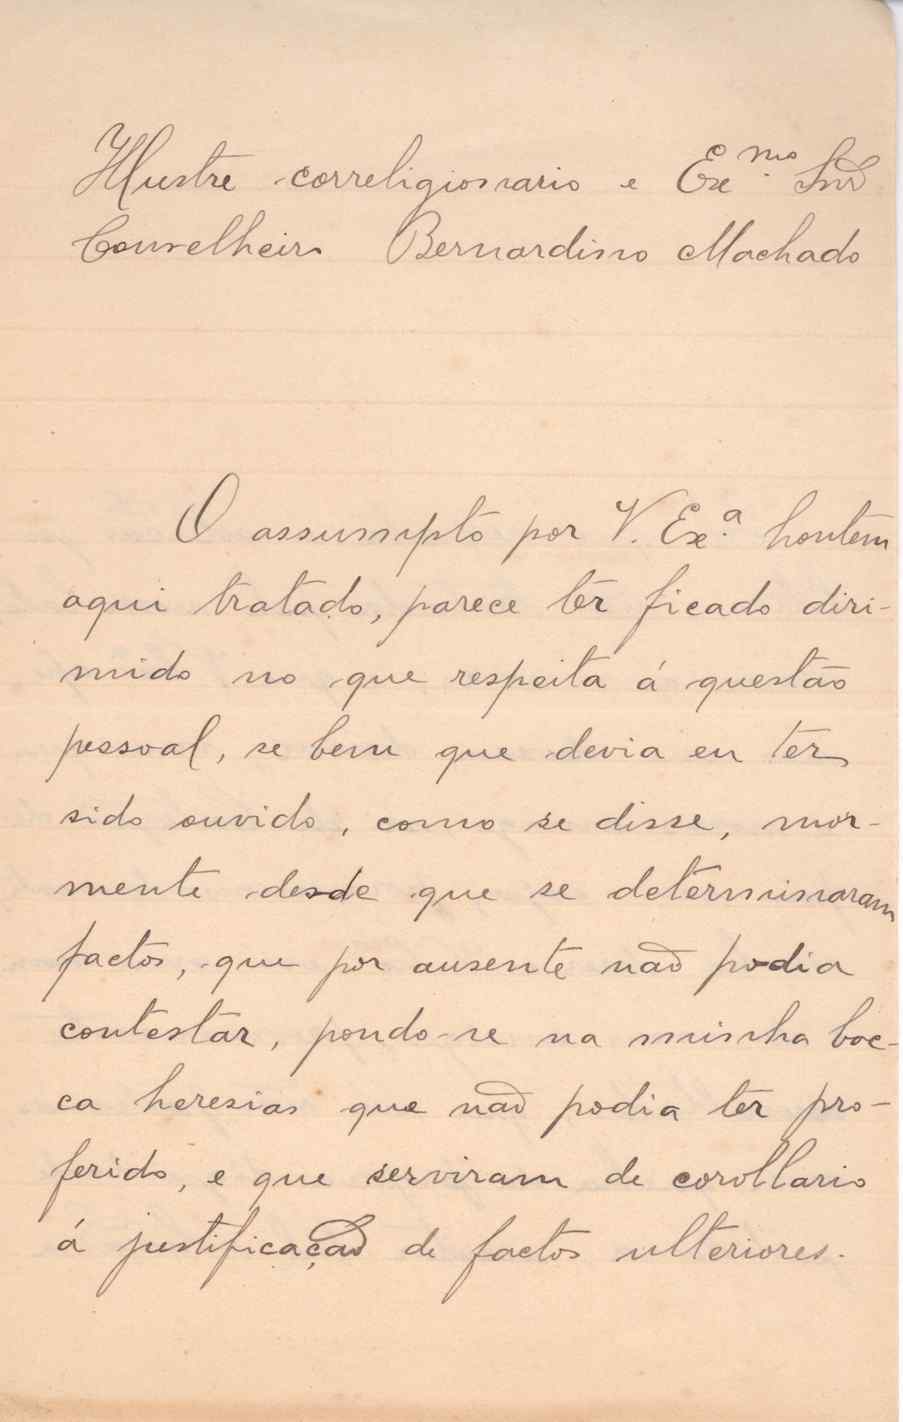 Illustre correligionario e Ex.mo Snr
Conselheiro Bernardino Machado
O assumpto por V. Ex.ª hontem
aqui tratado, parece ter ficado diri-
mido no que respeita á questão
pessoal, se bem que devia eu ter
sido ouvido, como se disse, mor-
mente desde que se determinaram
factos, que por ausente não podia
contestar, pondo-se na minha boc-
ca heresias que não podia ter pro-
ferido, e que serviram de corollario
á justificação de factos ulteriores.